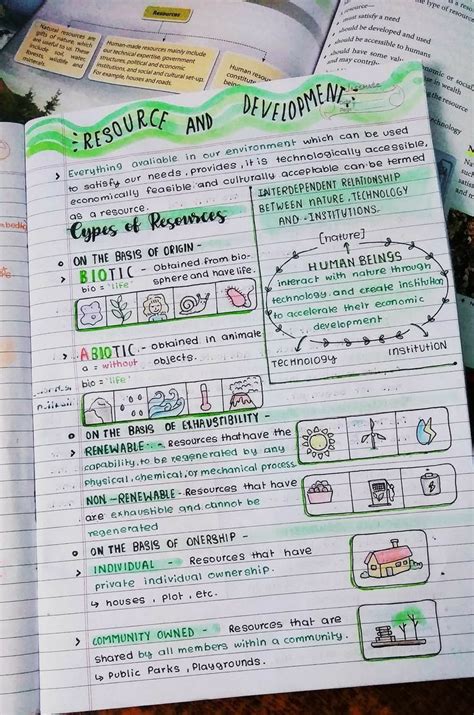 Resources
Natural resources are
gifts of nature, which
are useful to us. These
include soil, water,
forests, wildlife and
minerals.
Human-made resources mainly include
our technical expertise, government
structures, political and economic
institutions, and social and cultural set-up.
For example, houses and roads.
Human resou
constitute
resource—
must satisfy a need
should be developed
should be accessible to humans
should have some val
and may contrib
RESOURCE AND DEVELOPMENT
> Everything available in our environment which can be used
to satisfy our needs, provides, it is technologically accessible,
economically feasible and culturally acceptable can be termed
as a resource.
Types of Resources
o ON THE BASIS OF ORIGIN -
> BIOTIC - Obtained from bio-
bio = 'life' sphere and have life.
> ABIOTIC - obtained in animate
a = without objects.
bio = 'life'
INTERDEPENDENT RELATIONSHIP
BETWEEN NATURE, TECHNOLOGY
AND INSTITUTIONS.
[nature]
HUMAN BEINGS
interact with nature through
technology and create institution
to accelerate their economic
development
Technology
institution
o ON THE BASIS OF EXHAUSTIBILITY -
> RENEWABLE - Resources that have the
capability to be regenerated by any
physical, chemical, or mechanical process.
NON-RENEWABLE - Resources that have
are exhaustible and cannot be
regenerated
o ON THE BASIS OF ONERSHIP -
> INDIVIDUAL - Resources that have
private individual ownership.
↳ houses, Plot, etc.
> COMMUNITY OWNED - Resources that are
shared by all members within a community.
↳ Public Parks, Playgrounds.